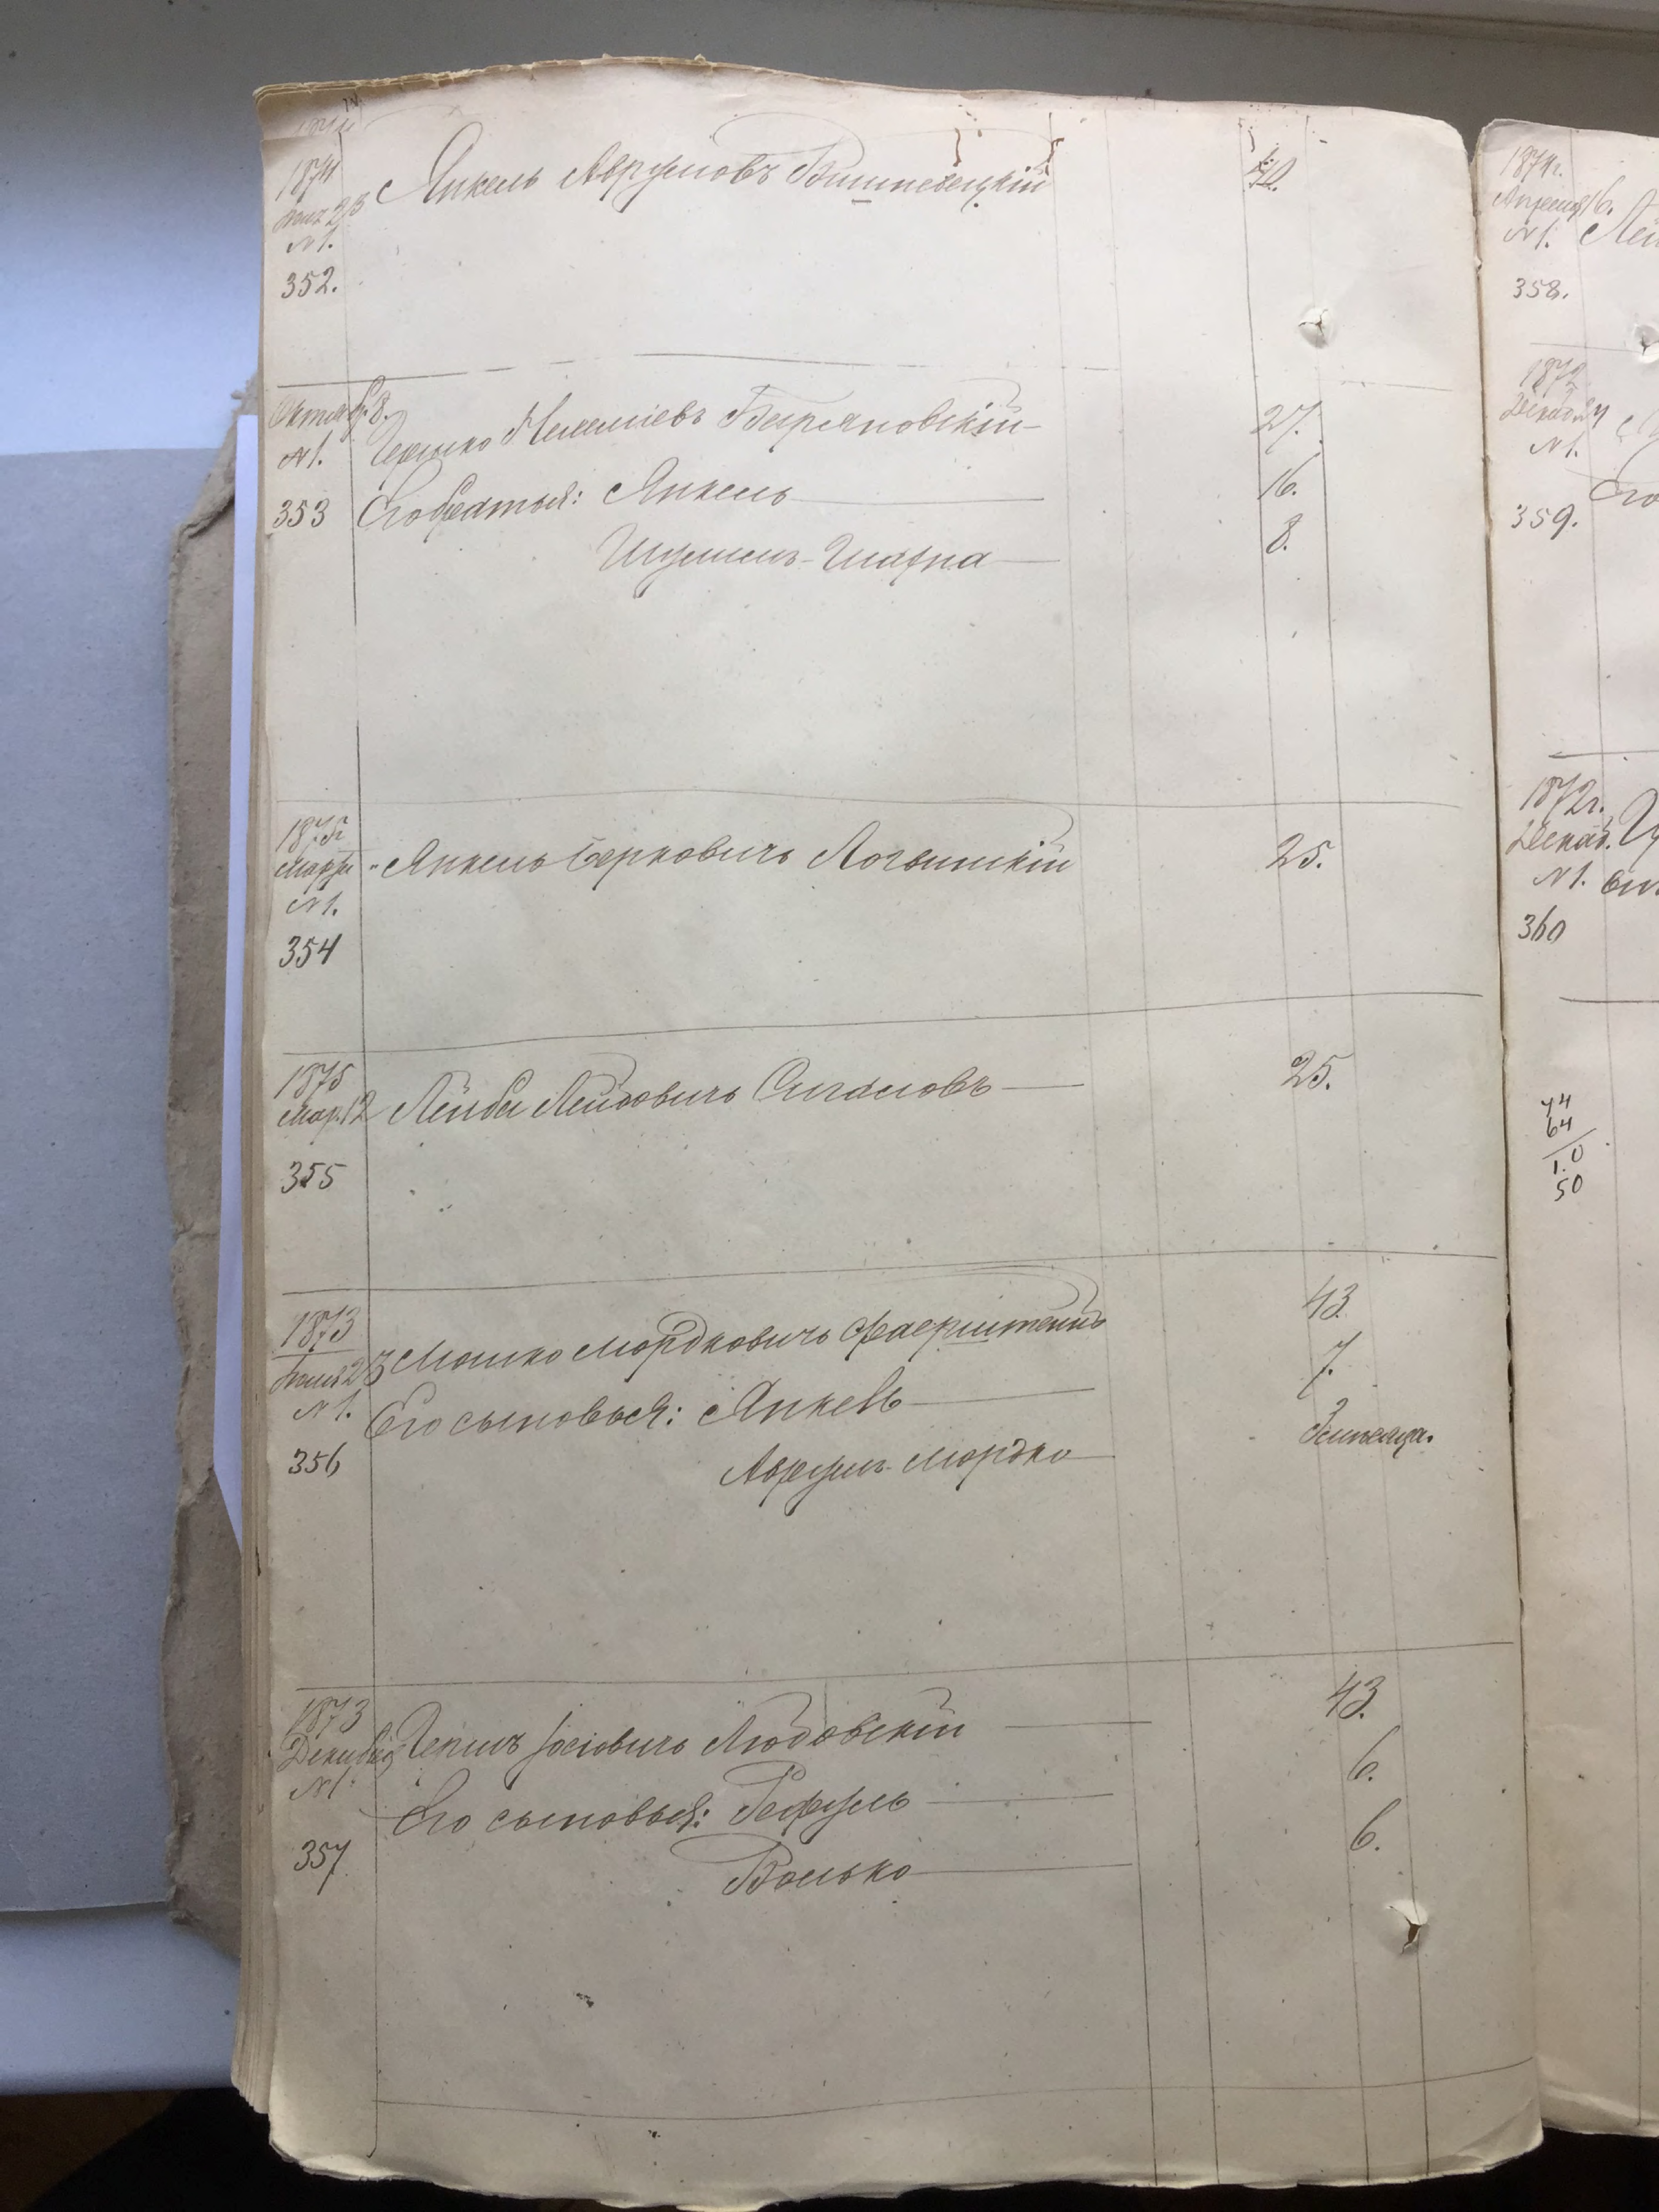 1874
N 1.
352.
Янкель Аврумовъ Вишневецкій
40.
Октяб. 8.
N 1.
353
Гершко Бурьяновскій
27.
Его братья: Янкель
16.
Шулимъ-Шахна
8.
1875
Марта
N 1.
354
Янкель Берковичъ Логвинскій
25.
1875
Мар. 12
355
Лейба Лейбовичъ
25.
1873
N 1.
356
Мошко Мордковичъ Фаерштейнъ
43.
Его сыновья: Янкель
7.
Аврумъ-Мордко
3 месяца.
1873
Декабр
N 1.
357
Іосіовичъ Людовскій
43.
Его сыновья: Рефуль
6.
Волько
6.
1874г.
Апреля 16.
N 1.
358.
1872
Декаб. 24
N 1.
359.
1872г.
Декаб.
N 1.
360
44
64
1.0
50